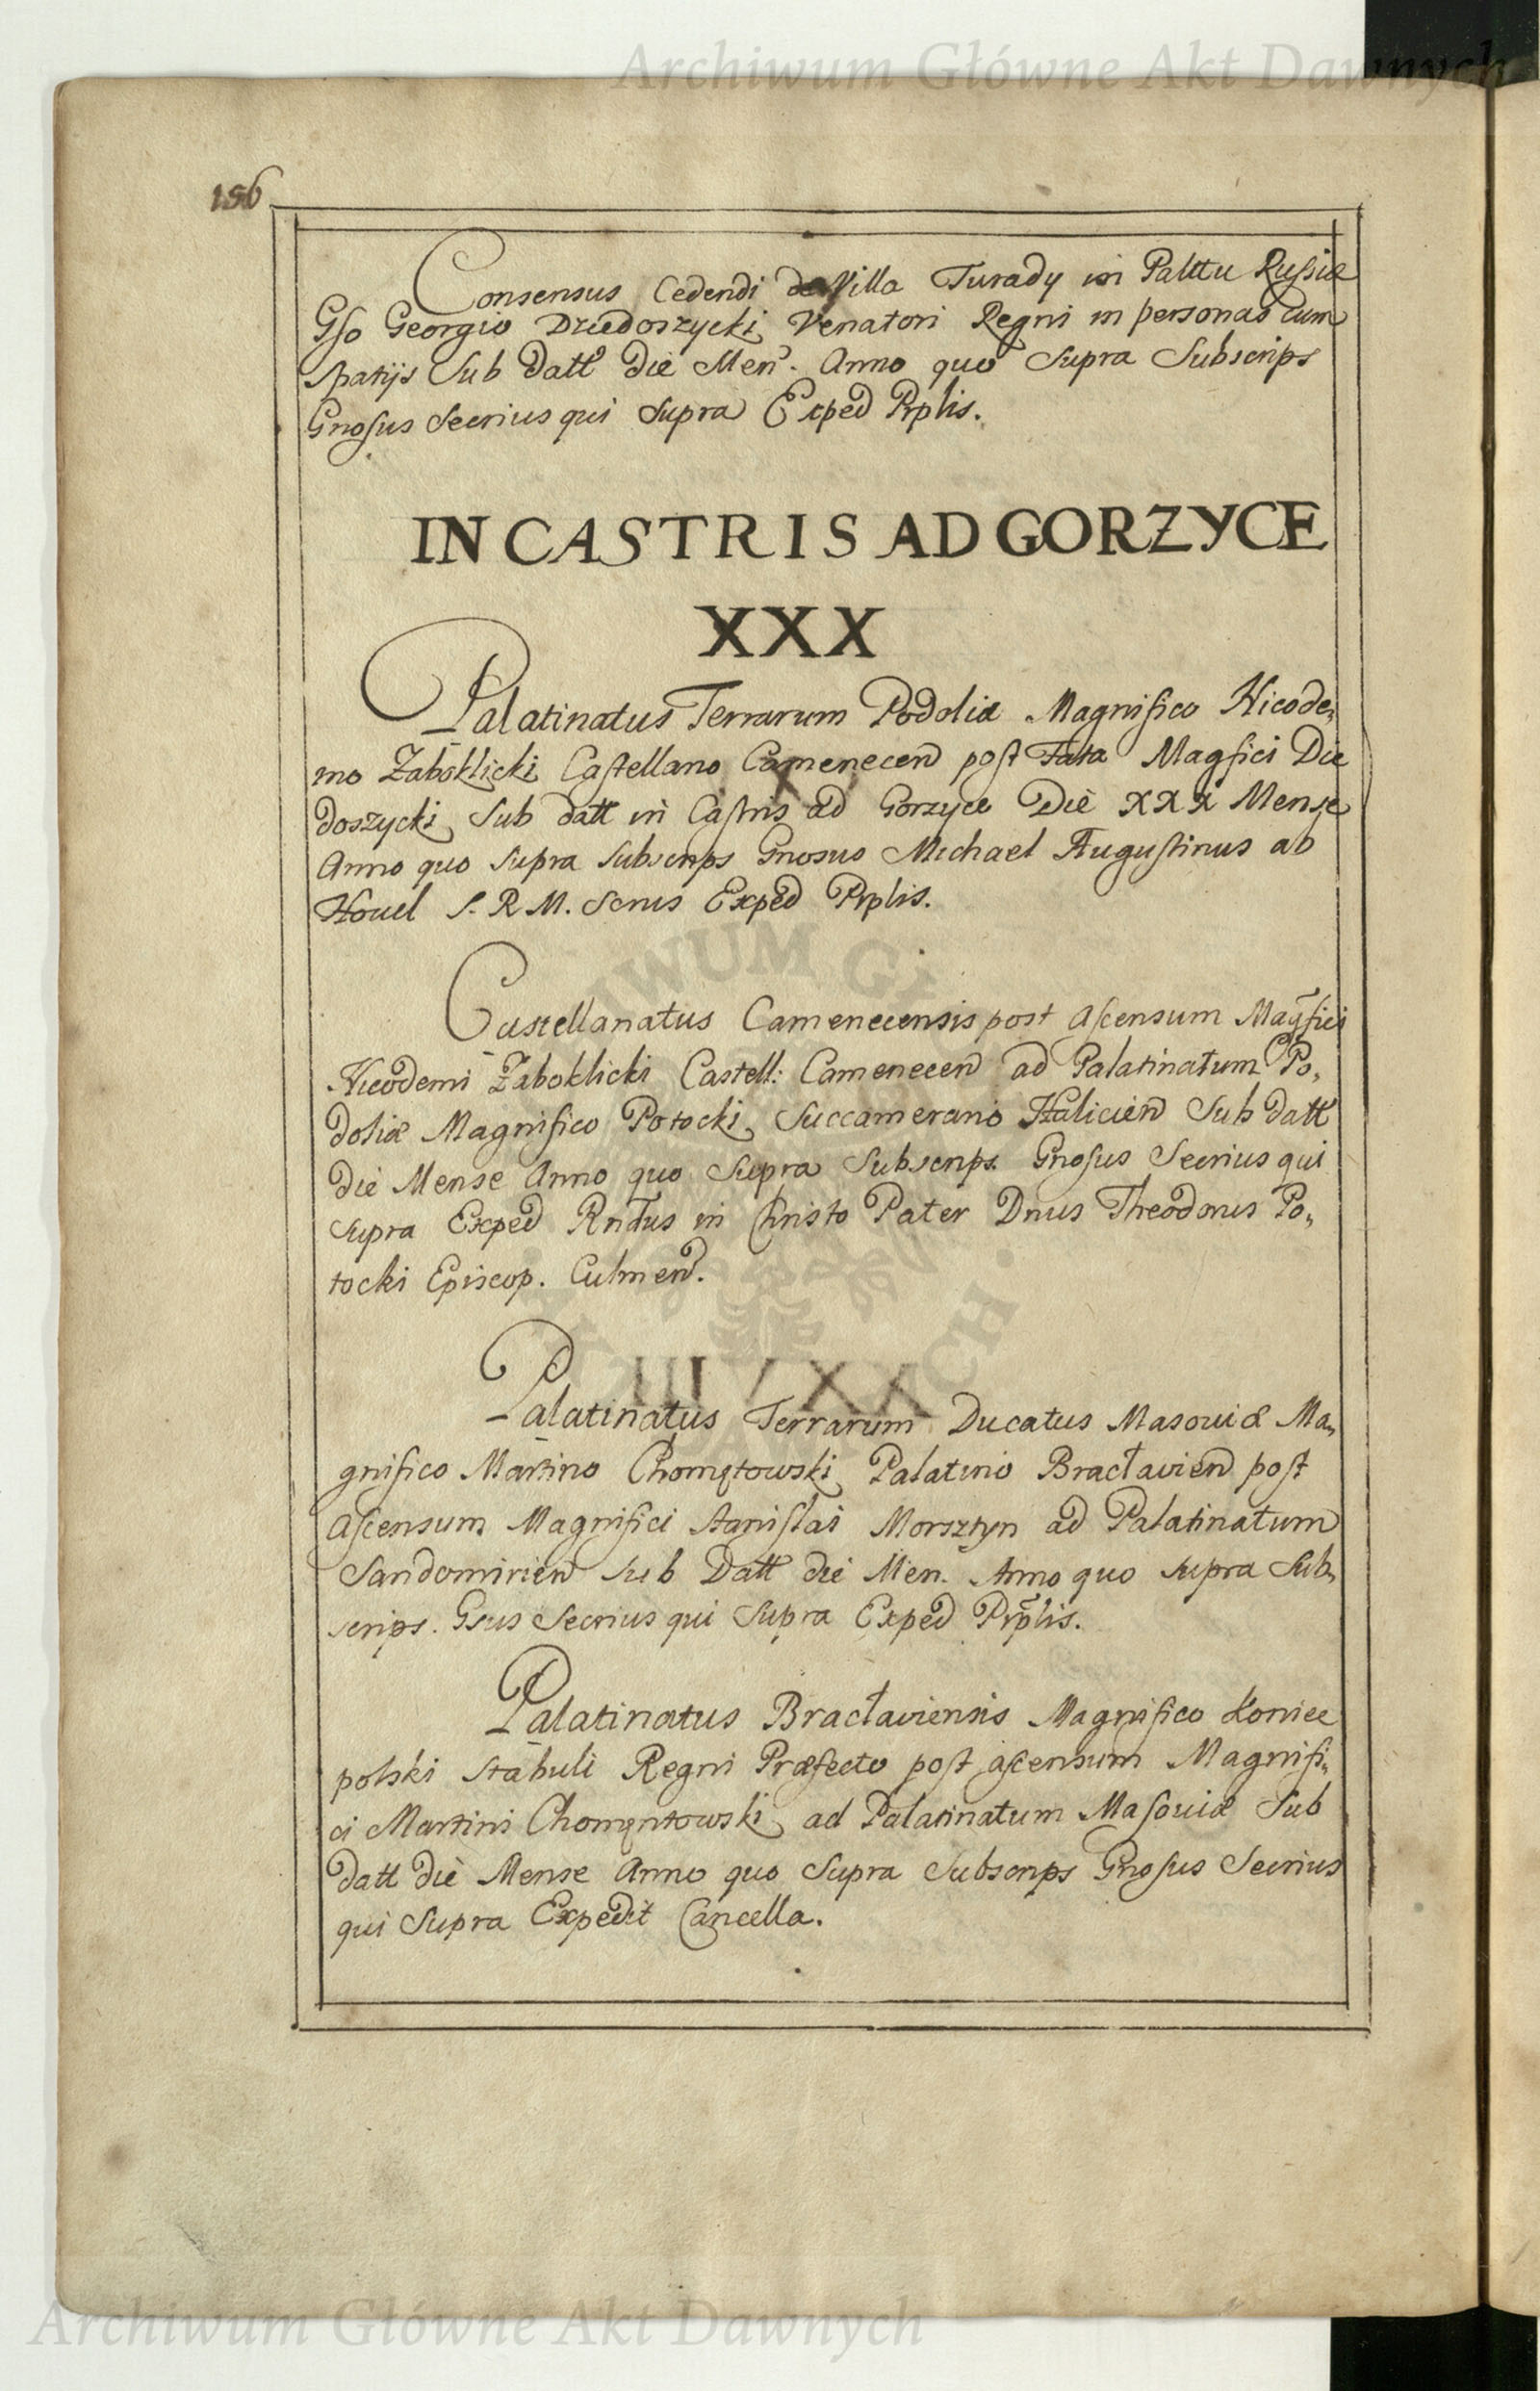 Archiwum Główne Akt Dawnych
156
Consensus Cedendi de Villa Turady in Palttu Russiæ
Gso Georgio Dziedoszycki Venatori Regni in personas cum
Spatijs Sub Datt die Men. Anno quo Supra Subscrips
Gnosus Secrius qui Supra Exped Prplis.
IN CASTRIS AD GORZYCE
XXX
Palatinatus Terrarum Podoliæ Magnifico Nicode,
mo Żaboklicki Castellano Camenecen post Fata Magfici Die
doszycki Sub datt in Castris ad Gorzyce Die XXX Mense
Anno quo Supra Subscrips Gnosus Michael Augustinus ab
Houel S. R. M. Scrius Exped Prplis.
Castellanatus Camenecensis post Ascensum Magfici
Nicodemi Żaboklicki Castell: Camenecen ad Palatinatum Po,
doliæ Magnifico Potocki Succamerario Halicien Sub datt
die Mense Anno quo Supra Subscrips. Gnosus Secrius qui
supra Exped Rndus in Christo Pater Dnus Theodorus Po,
tocki Episcop. Culmen.
Palatinatus Terrarum Ducatus Masoviæ Ma,
gnifico Martino Chomętowski Palatino Bracłavien post
Ascensum Magnifici Stanislai Morsztyn ad Palatinatum
Sandomirien Sub Datt die Men. Anno quo supra Sub,
scrips. Gsus Secrius qui Supra Exped Prplis.
Palatinatus Bracłaviensis Magnifico Koniec
polski Stabuli Regni Præfecto post ascensum Magnifi,
ci Martini Chomęntowski ad Palatinatum Masoviæ Sub
datt die Mense Anno quo Supra Subscrips Gnosus Secrius
qui Supra Expedit Cancella.
Archiwum Główne Akt Dawnych